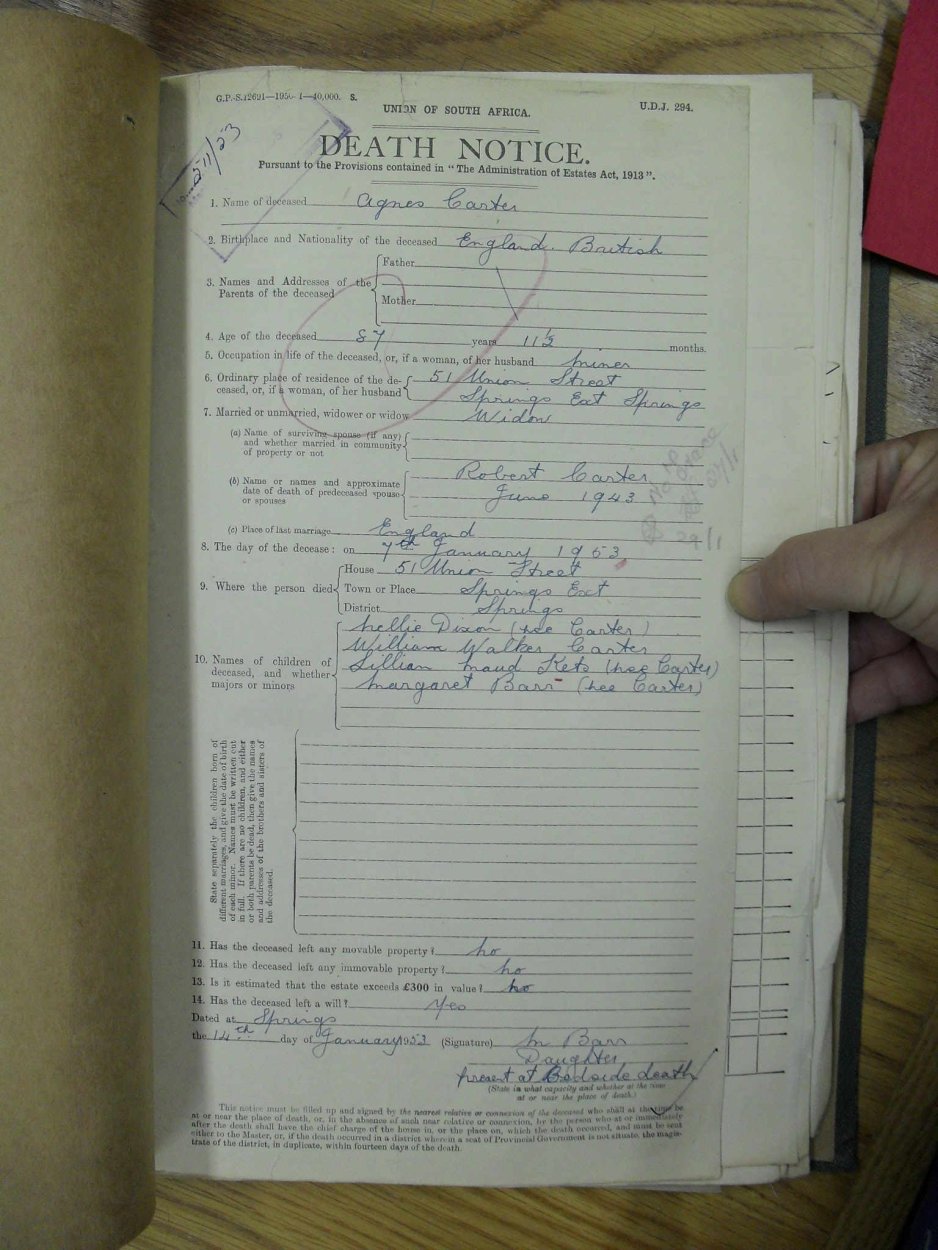 G.P.-S.12691—1950- 1—40,000. S.
UNION OF SOUTH AFRICA.
U.D.J. 294.
DEATH NOTICE.
Pursuant to the Provisions contained in "The Administration of Estates Act, 1913".
1. Name of deceased Agnes Carter
2. Birthplace and Nationality of the deceased England. British
3. Names and Addresses of the Parents of the deceased
Father
Mother
4. Age of the deceased 87 years 11½ months.
5. Occupation in life of the deceased, or, if a woman, of her husband miner
6. Ordinary place of residence of the de- 51 Union Street
ceased, or, if a woman, of her husband Springs Ext Springs
7. Married or unmarried, widower or widow Widow
(a) Name of surviving spouse (if any)
and whether married in community
of property or not
(b) Name or names and approximate Robert Carter
date of death of predeceased spouse June 1943
or spouses
(c) Place of last marriage England
8. The day of the decease: on 7th January 1953
9. Where the person died
House 51 Union Street
Town or Place Springs Ext
District Springs
10. Names of children of
deceased, and whether
majors or minors
Nellie Dixon (nee Carter)
William Walker Carter
Lillian Maud (nee Carter)
Margaret Barr (nee Carter)
State separately the children born of
different marriages, and give the date of birth
of each minor. Names must be written out
in full. If there are no children, and either
or both parents be dead, then give the names
and addresses of the brothers and sisters of
the deceased.
11. Has the deceased left any movable property? No
12. Has the deceased left any immovable property? No
13. Is it estimated that the estate exceeds £300 in value? No
14. Has the deceased left a will? Yes
Dated at Springs
the 14th day of January 1953 (Signature) M Barr
Daughter
present at Bedside death
(State in what capacity and whether at the time
at or near the place of death.)
This notice must be filled up and signed by the nearest relative or connexion of the deceased who shall at the time be
at or near the place of death, or, in the absence of such near relative or connexion, by the person who at or immediately
after the death shall have the chief charge of the house in, or the place on, which the death occurred, and must be sent
either to the Master, or, if the death occurred in a district wherein a seat of Provincial Government is not situate, the magis-
trate of the district, in duplicate, within fourteen days of the death.